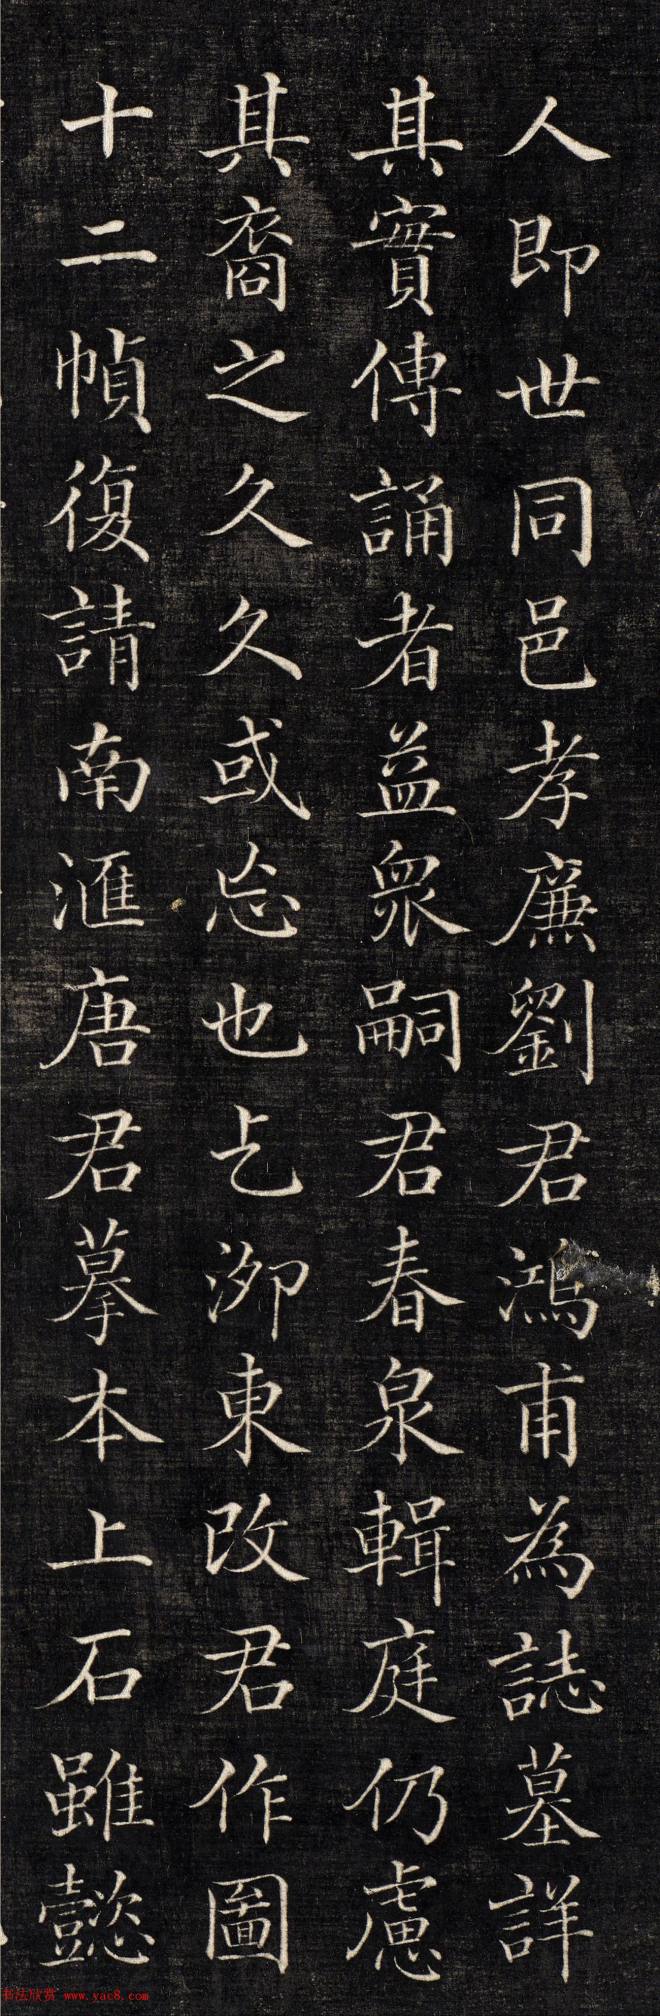 人即世同邑孝廉劉君鴻甫為誌墓詳
其實傳誦者益眾嗣君春泉輯庭仍慮
其裔之久久或忘也乞泖東改君作圖
十二幀復請南滙唐君摹本上石雖懿
书法欣赏 www.yac8.com